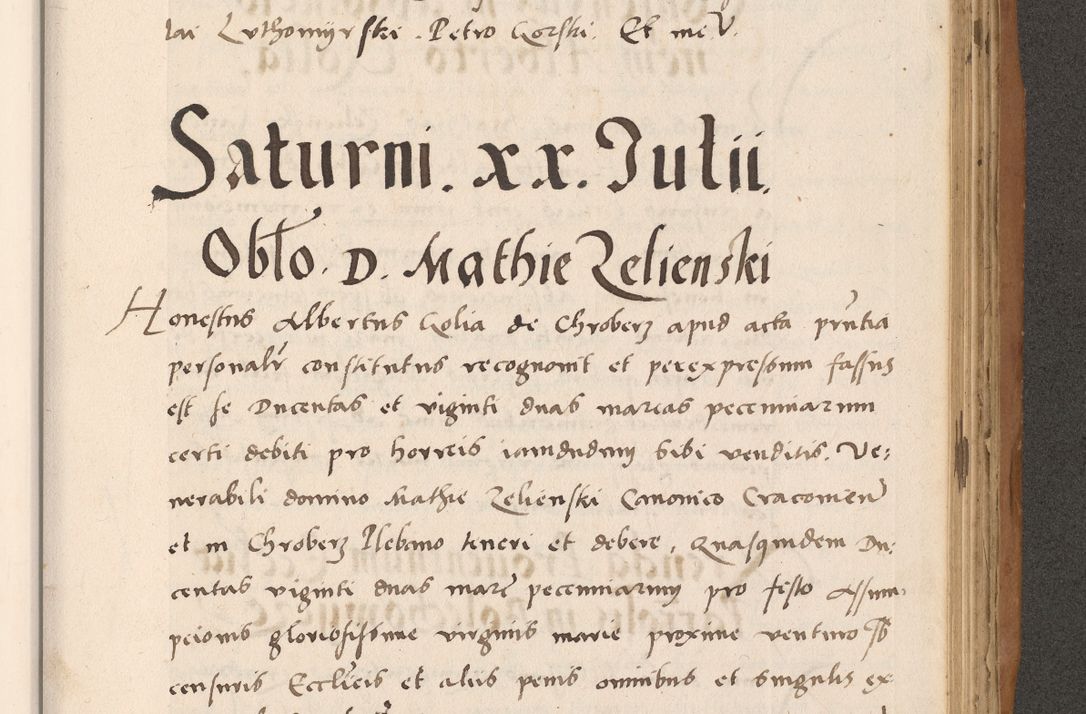 lai Luthomyrski. Petro Gorski. Et me
Saturni. xx. Julii.
Oblo. D. Mathie Zelienski
Honestus Albertus Golia de Chroberz apud acta prntia
personalr constitutus recognovit et per expressum fassus
est se Ducentas et viginti duas marcas pecuniarum
certi debiti pro horreis iamdudum sibi venditis. Ve:
nerabili domino Mathie Zelienski Canonico Cracovien
et in Chroberz Plebano teneri et debere, Quasquidem Du:
centas viginti duas marc pecuniarum pro festo Assum:
pcionis gloriosissime virginis marie proxime venturo sb
censuris Ecclicis et aliis penis omnibus et singulis ex